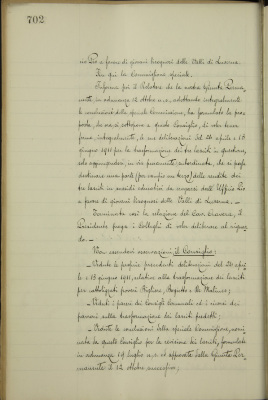 702
nio Pio a favore di giovani bisognosi delle Valli di Lucerna.
Fin qui la Commissione speciale.
Informa poi il Relatore che la nostra Giunta Perma-
nente, in adunanza 12 ottobre u. s., adottando integralmente
le conclusioni della speciale Commissione, ha formulato la pro-
posta, che ora si sottopone a questo Consiglio, di voler tener
ferme, integralmente, le sue deliberazioni del 24 aprile e 13
giugno 1911 per la trasformazione dei tre lasciti in questione,
solo aggiungendovi in via puramente subordinata, che si possa
destinare una parte (per esempio un terzo) delle rendite dei
tre lasciti in sussidi educativi da erogarsi dall'Ufficio Pio
a favore di giovani bisognosi delle Valli di Lucerna. —
Terminata così la relazione del Cav. il
Presidente prega i Colleghi di voler deliberare al riguar-
do. —
Non essendovi osservazioni, il Consiglio:
— Vedute le proprie precedenti deliberazioni del 24 apri-
le e 13 giugno 1911, relative alla trasformazione dei lasciti
per sottolegati poveri
— Veduti i pareri dei Consigli Comunali ed i ricorsi dei
parroci sulla trasformazione dei lasciti predetti;
— Vedute le conclusioni della speciale Commissione, nomi-
nata da questo Consiglio per la revisione dei lasciti, formulate
in adunanza 19 luglio u. s. ed approvate dalla Giunta Per-
manente il 12 ottobre successivo;